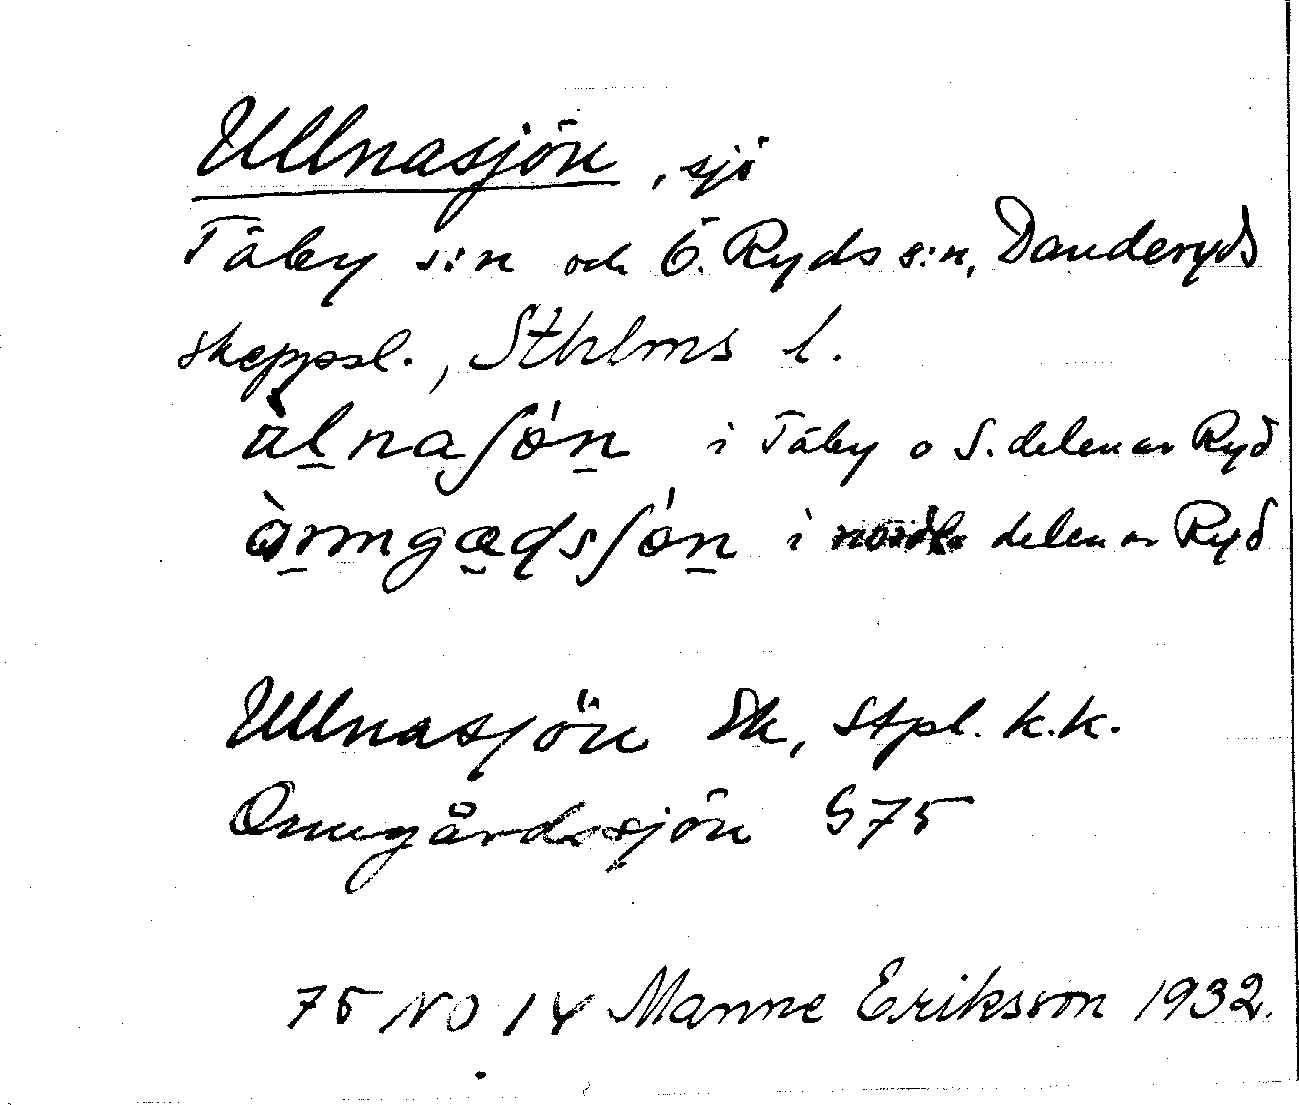 Ullnasjön, sjö
Täby s:n och Ö. Ryds s:n, Danderyds
skeppsl., Sthlms l.
i Täby o S. delen av Ryd
i nordl. delen av Ryd
Ullnasjön Ek, Stpl. k.k.
Ormgårdssjön G75
75 NO 14 Manne Eriksson 1932.